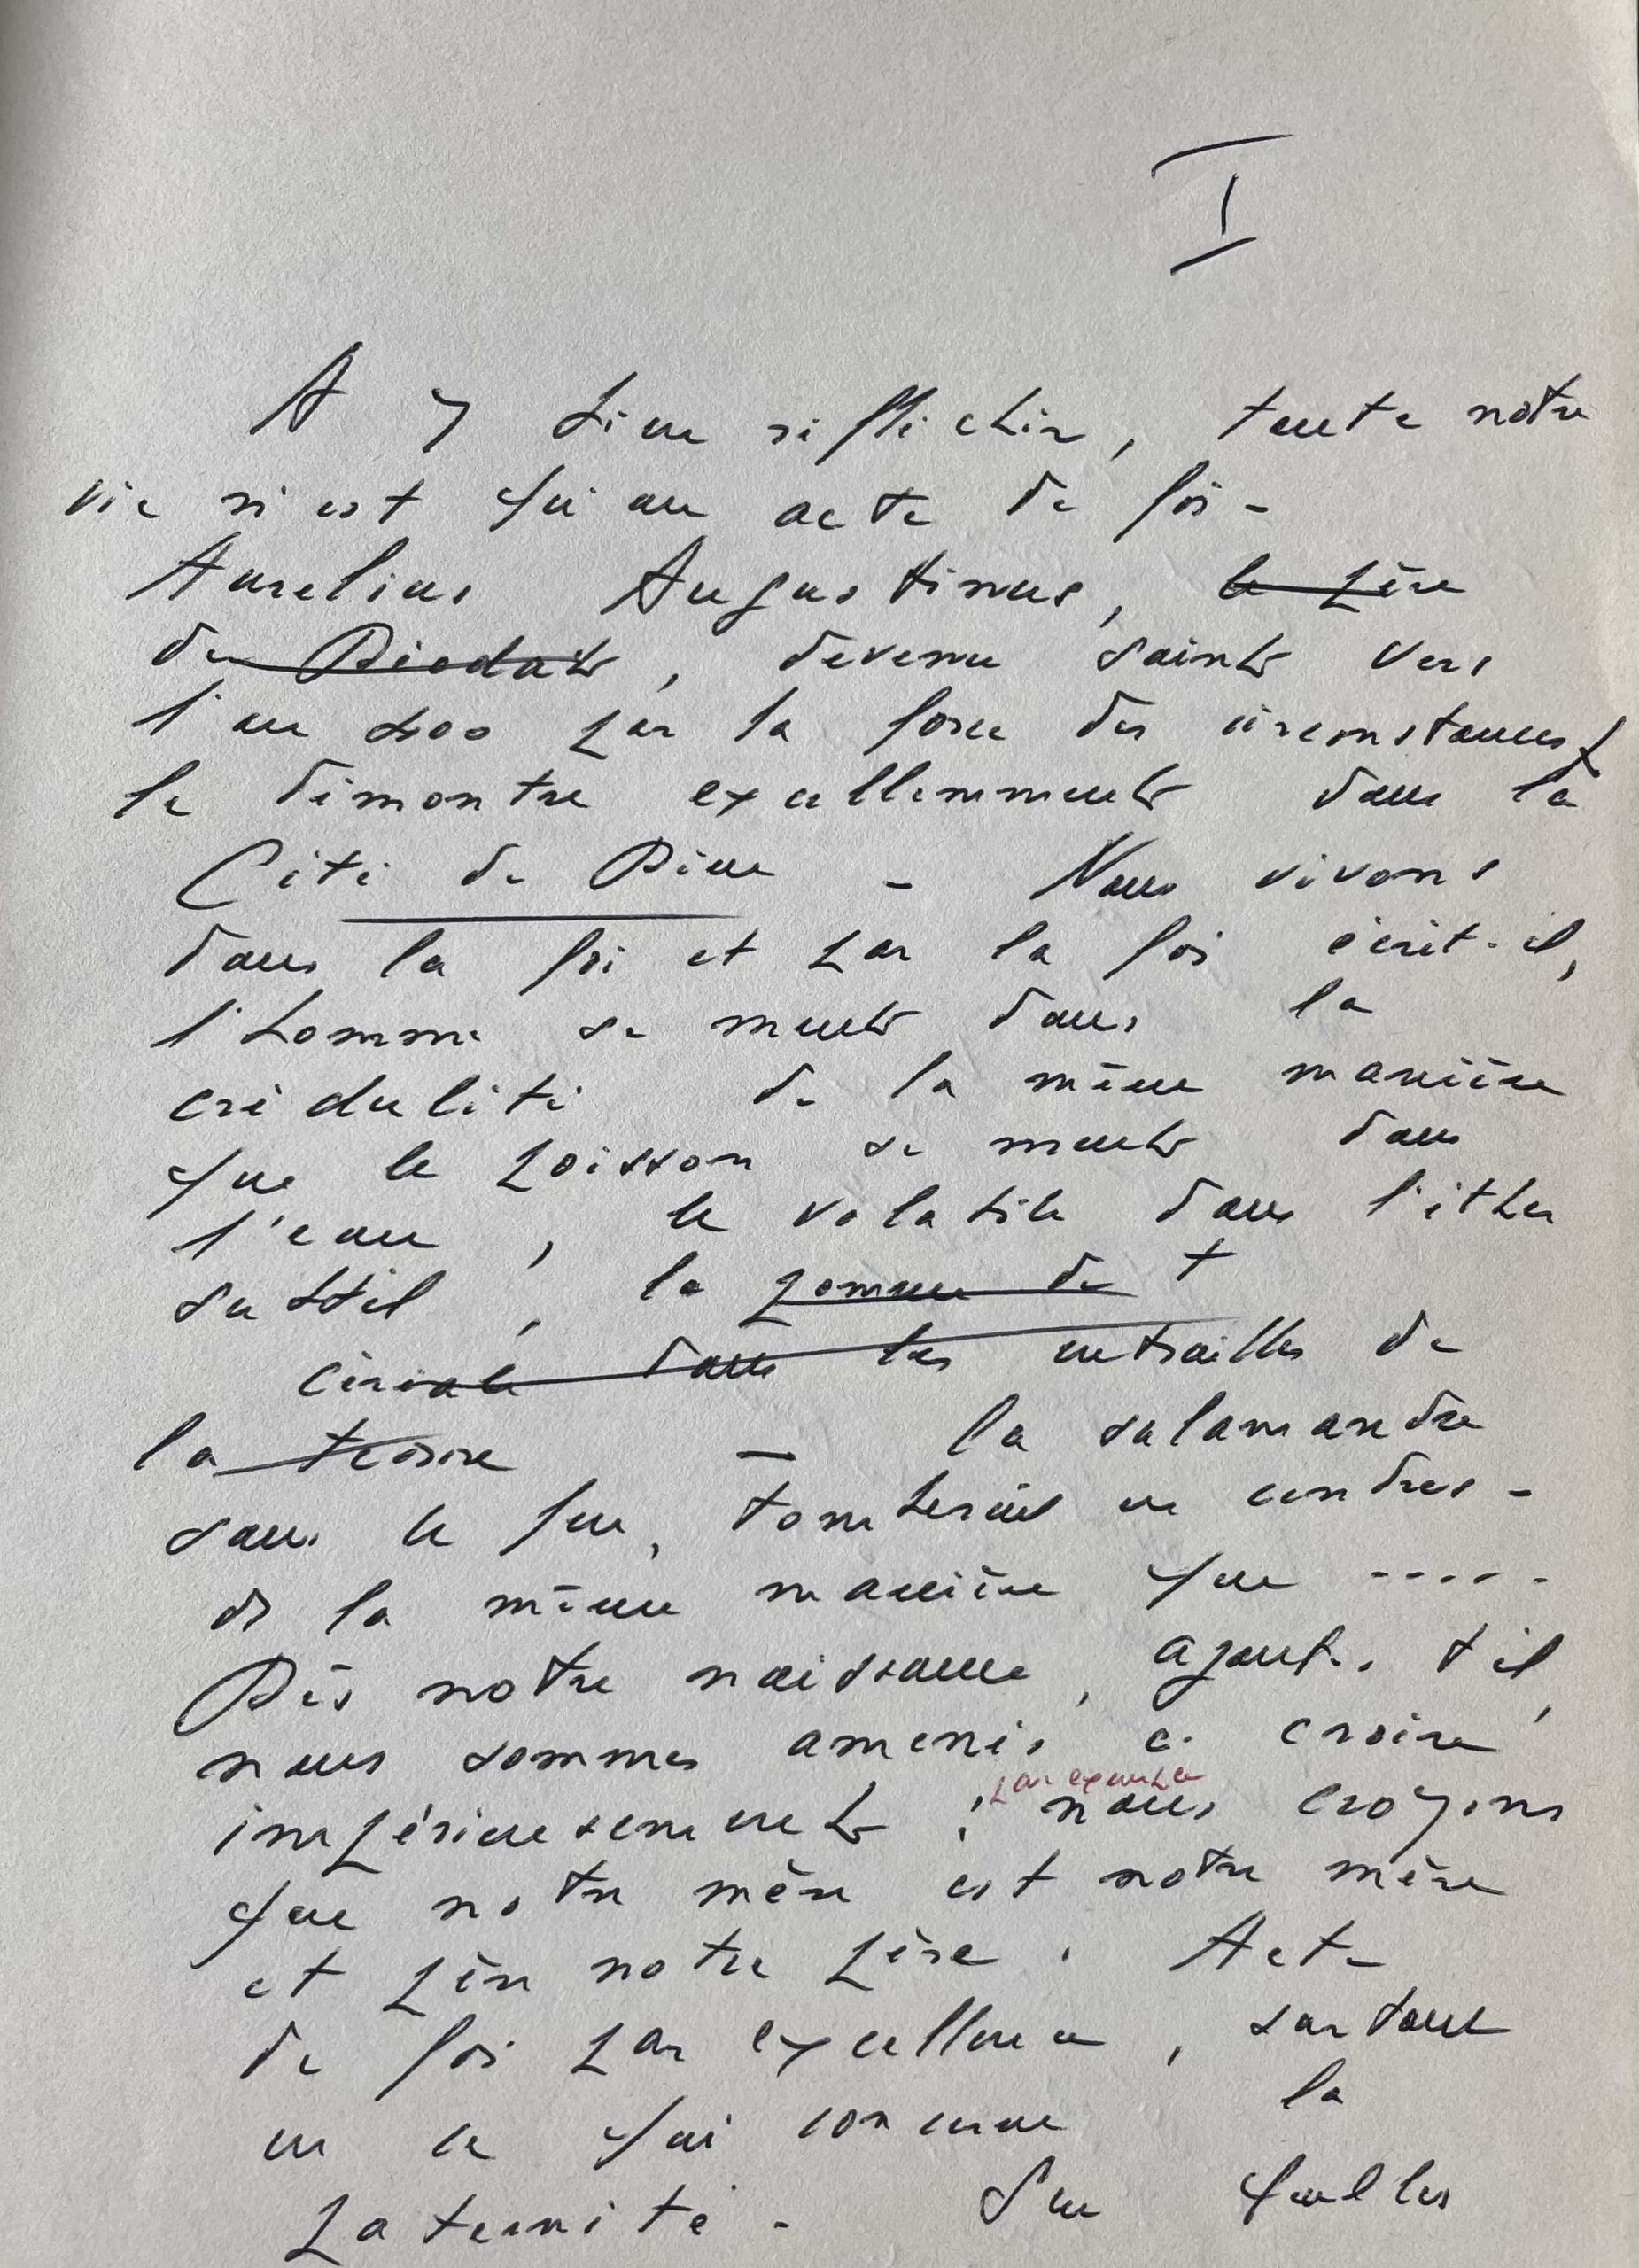 I
A y bien réfléchir, toute notre
vie n'est qu'un acte de foi -
Aurelius Augustinus, le père
de Diodat, devenu saint vers
l'an 400 par la force des circonstances
le démontre excellemment dans la
Cité de Dieu - Nous vivons
dans la foi et par la foi écrit-il,
l'homme se meut dans la
crédulité de la même manière
que le poisson se meut dans
l'eau, le volatile dans l'éther
subtil, la pomme de t
cériale dans les entrailles de
la terre - la salamandre
sans le feu, tomberait en cendres -
de la même manière que -----
Dès notre naissance, ajoute t'il,
nous sommes amenés à croire
par exemple
impérieusement : nous croyons
que notre mère est notre mère
et père notre père. Acte
de foi par excellence, surtout
en ce qui concerne la
paternité - Sur quelles